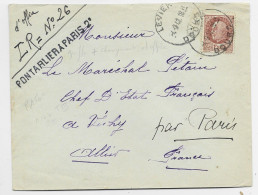 d'office
I R = No 26
PONTARLIER A PARIS 2°
LEVIER
Monsieur
Le Maréchal Pétain
Chef D'Etat Français
à Vichy par Paris
Allier France